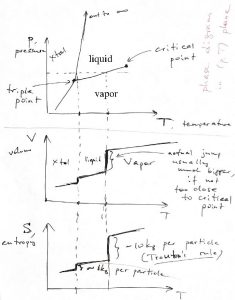 P,
pressure
xtal
out to ∞
liquid
critical
point
triple
point
vapor
T, temperature
phase diagram
in (p,T) plane
V
volume
xtal
liquid
Vapor
actual jump
usually
much bigger,
if not
too close
to critical
point
T
S,
entropy
~10k per particle
(Trouton's rule)
per particle
T